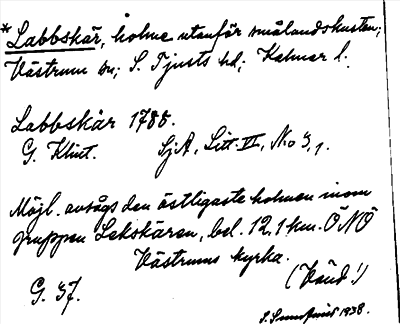 *Labbskär, holme utanför smålandskusten;
Västrum sn; S. Tjusts hd; Kalmar l.
Labbskär 1788.
G. Klint. SjA, Litt. VI, No 3, 1.
Möjl. avsågs den östligaste holmen inom
gruppen Lekskären, bel. 12,1 km. ÖNÖ
Västrums kyrka.
G. 37. (Vänd!)
1938.